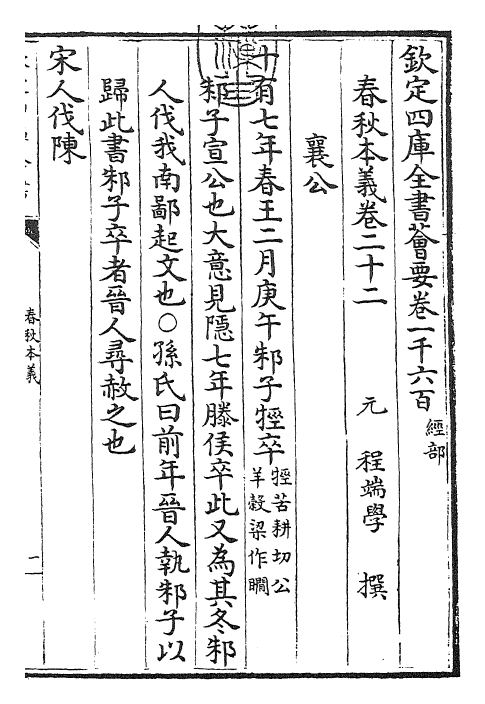 欽定四庫全書薈要卷一千六百 經部
春秋本義卷二十二 元 程端學 撰
襄公
十有七年春王二月庚午邾子牼卒 牼苦耕切公羊榖梁作瞯
邾子宣公也大意見隱七年滕侯卒此又為其冬邾
人伐我南鄙起文也○孫氏曰前年晉人執邾子以
歸此書邾子卒者晉人尋赦之也
宋人伐陳
春秋本義